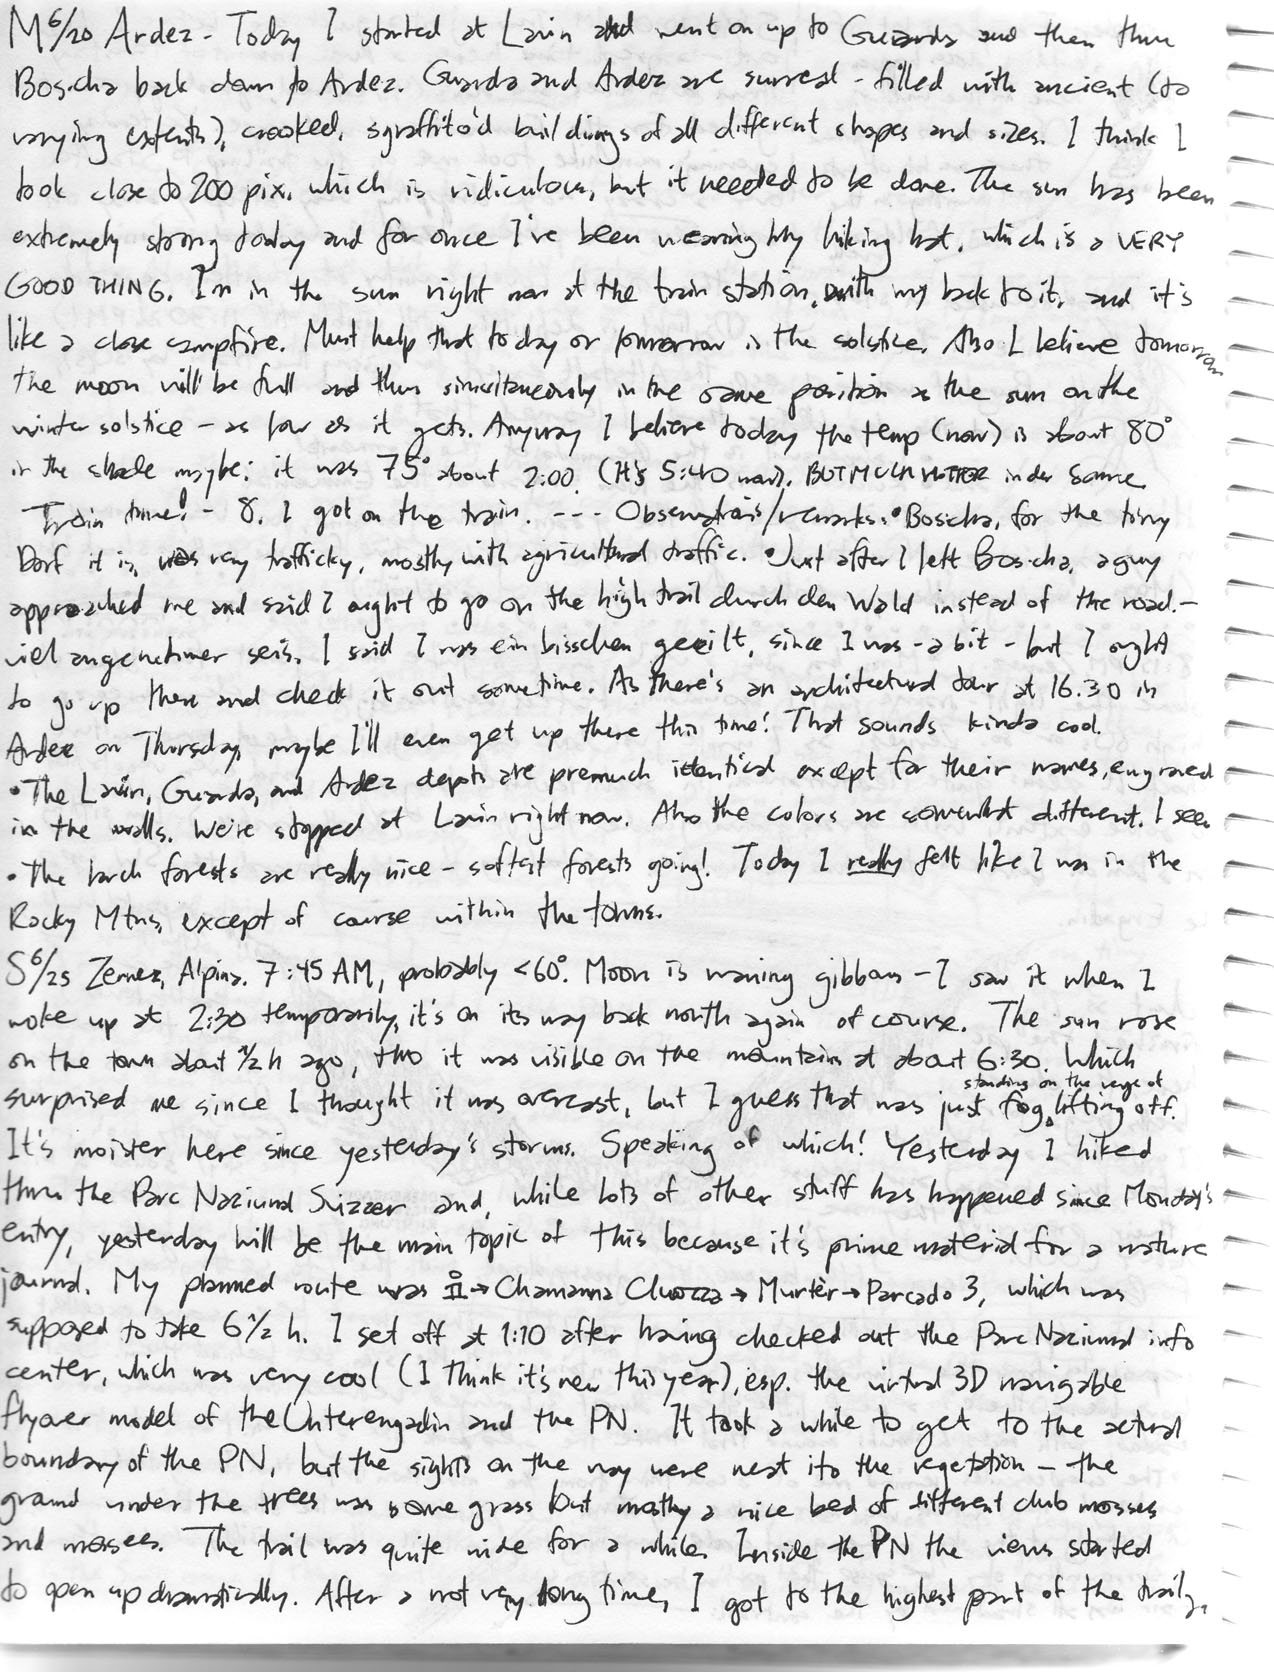 M 6/20 Ardez - Today I started at Lavin and went on up to Guarda and then thru
Bos-cha back down to Ardez. Guarda and Ardez are surreal - filled with ancient (to
varying extents), crooked, sgraffito'd buildings of all different shapes and sizes. I think I
took close to 200 pix, which is ridiculous, but it needed to be done. The sun has been
extremely strong today and for once I've been wearing my hiking hat, which is a VERY
GOOD THING. I'm in the sun right now at the train station, with my back to it, and it's
like a close campfire. Must help that today or tomorrow is the solstice. Also I believe tomorrow
the moon will be full and thus simultaneously in the same position as the sun on the
winter solstice - as low as it gets. Anyway I believe today the temp (now) is about 80°
in the shade maybe: it was 75° about 2:00. (It's 5:40 now). BUT MUCH HOTTER in der Sonne.
Train time! - 8. I got on the train. --- Observations/remarks: • Bos-cha, for the tiny
Dorf it is, was very trafficky, mostly with agricultural traffic. • Just after I left Bos-cha, a guy
approached me and said I ought to go on the high trail durch den Wald instead of the road. -
viel angenehmer seis. I said I was ein bisschen geeilt, since I was - a bit - but I ought
to go up there and check it out sometime. As there's an architectural tour at 16.30 in
Ardez on Thursday, maybe I'll even get up there this time! That sounds kinda cool.
• The Lavin, Guarda, and Ardez depots are premuch identical except for their names, engraved
in the walls. We're stopped at Lavin right now. Also the colors are somewhat different. I see.
• The larch forests are really nice - softest forests going! Today I really felt like I was in the
Rocky Mtns, except of course within the towns.
S 6/25 Zernez, Alpina. 7:45 AM, probably <60°. Moon is waning gibbous - I saw it when I
woke up at 2:30 temporarily, it's on its way back north again of course. The sun rose
on the town about 1/2 h ago, tho it was visible on the mountain at about 6:30. Which
surprised me since I thought it was overcast, but I guess that was just fog standing on the verge of lifting off.
It's moister here since yesterday's storms. Speaking of which! Yesterday I hiked
thru the Parc Naziunal Svizzer and, while lots of other stuff has happened since Monday's
entry, yesterday will be the main topic of this because it's prime material for a nature
journal. My planned route was → Chamanna Cluozza → Murtèr → Parcado 3, which was
supposed to take 6 1/2 h. I set off at 1:10 after having checked out the Parc Naziunal info
center, which was very cool (I think it's new this year), esp. the virtual 3D navigable
flyover model of the Unterengadin and the PN. It took a while to get to the actual
boundary of the PN, but the sights on the way were neat ito the vegetation - the
ground under the trees was some grass but mostly a nice bed of different club mosses
and mosses. The trail was quite wide for a while. Inside the PN the views started
to open up dramatically. After a not very long time, I got to the highest part of the trail,